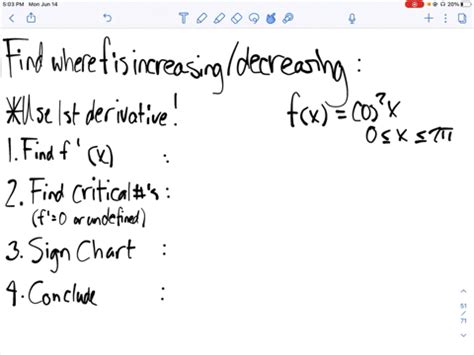 5:03 PM Mon Jun 14
20%
Find where f is increasing/decreasing :
f(x) = cos²x
0 ≤ x ≤ 2π
*Use 1st derivative!
1. Find f'(x) :
2. Find critical #'s :
(f'=0 or undefined)
3. Sign Chart :
4. Conclude :
51
/
71